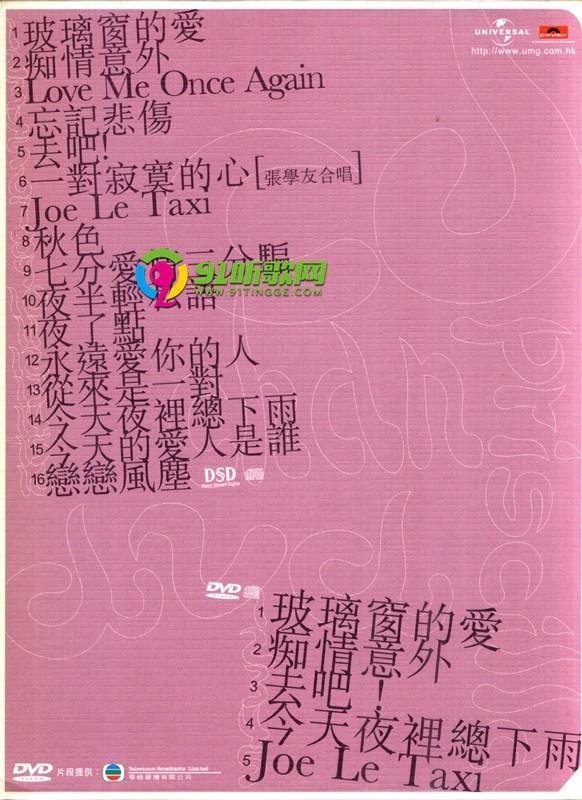 UNIVERSAL
polydor
http://www.umg.com.hk
1 玻璃窗的愛
2 痴情意外
3 Love Me Once Again
4 忘記悲傷
5 去吧!
6 一對寂寞的心[張學友合唱]
7 Joe Le Taxi
8 秋色
9 七分愛 三分騙
91听歌网
WWW.91TINGGE.COM
10 夜半輕 語
11 夜了點
12 永遠愛你的人
13 從來是一對
14 今天夜裡總下雨
15 今天的愛人是誰
16 戀戀風塵
DSD
Direct Stream Digital
DVD
VIDEO
1 玻璃窗的愛
2 痴情意外
3 去吧!
4 今天夜裡總下雨
5 Joe Le Taxi
DVD
VIDEO
片段提供:
Television Broadcasts Limited
電視廣播有限公司